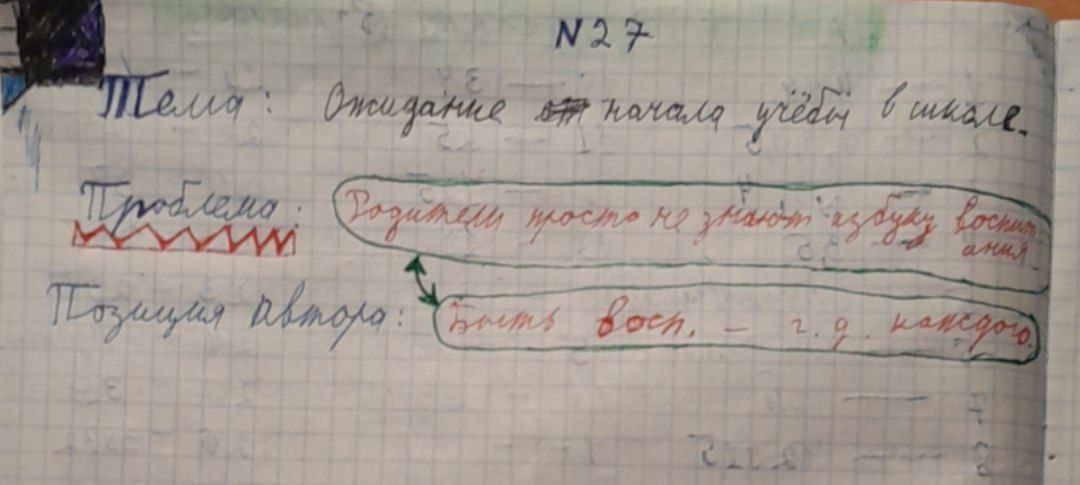 N27
Тема: Ожидание начала учёбы в школе.
Проблема: Родители просто не знают азбуку воспит
ания
Позиция автора: Быть восп. – г.д. каждого.